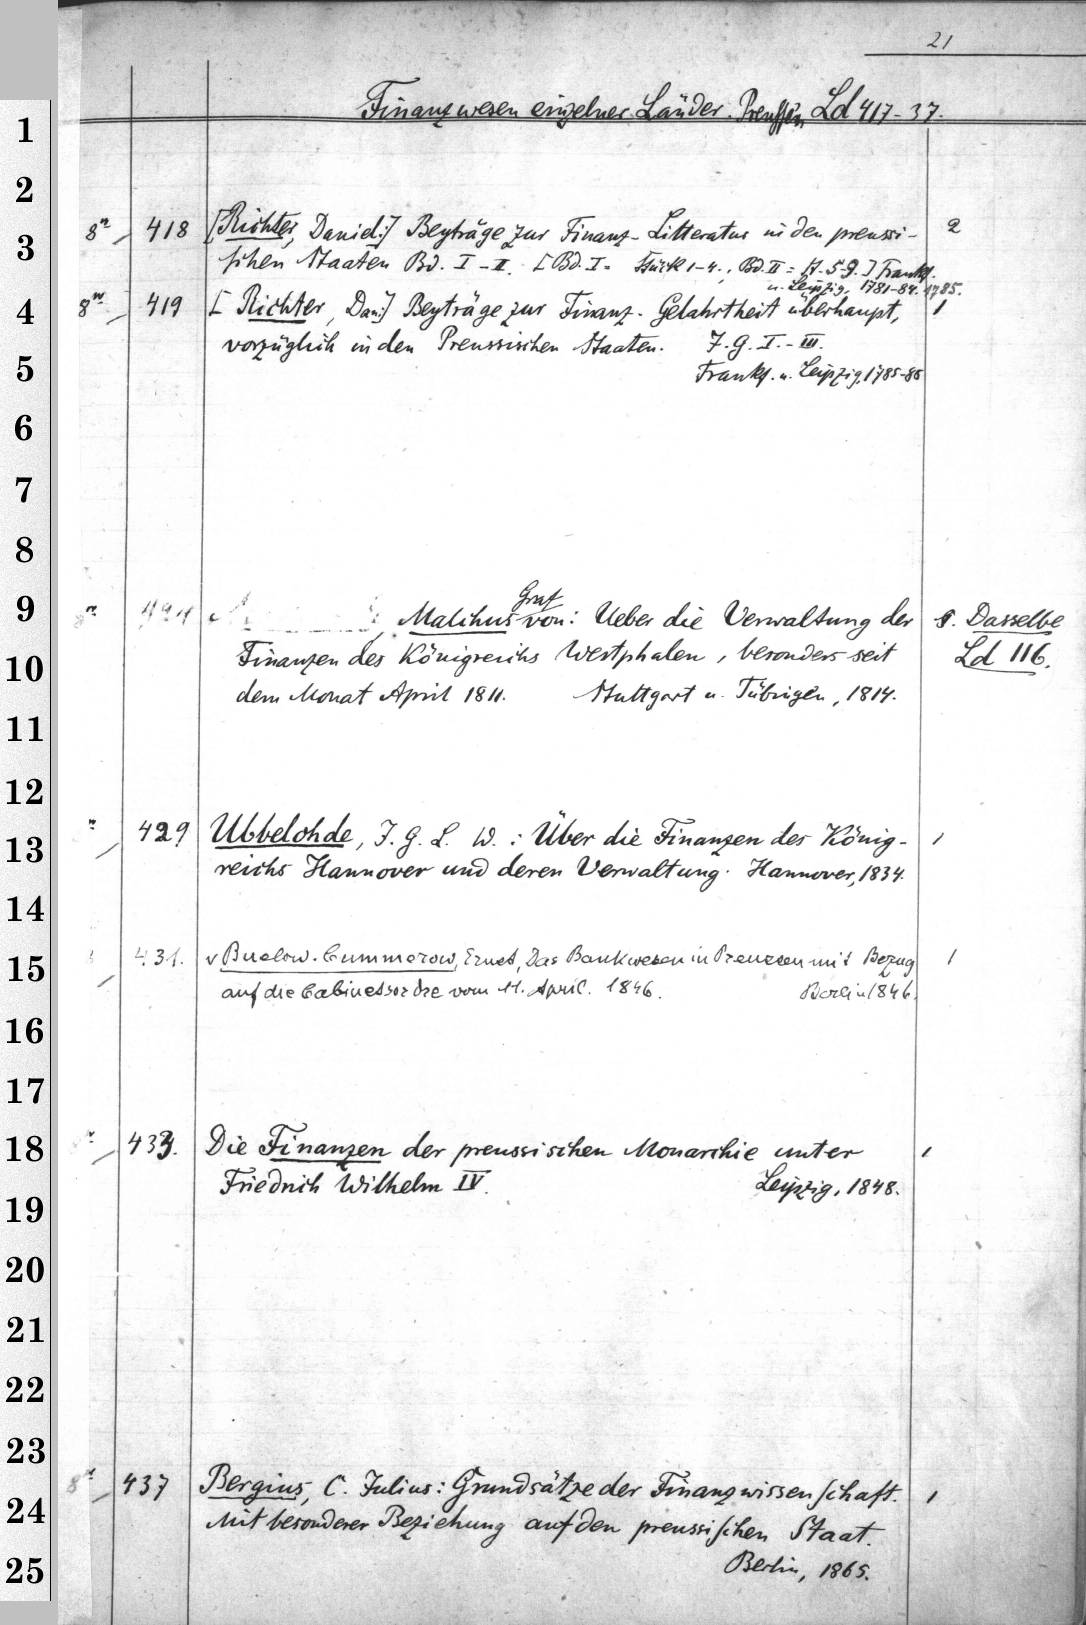 21
Finanzwesen einzelner Länder. Preußen Ld 417-37.
8º 418 [Richter, Daniel:] Beyträge zur Finanz-Litteratur in den preussi- 2
schen Staaten Bd. I-II. [Bd. I = Stück 1-4., Bd. II = St. 5-9.] Frankf.
u. Leipzig, 1781-84. 1785.
8º 419 [Richter, Dan:] Beyträge zur Finanz-Gelahrtheit überhaupt, 1
vorzüglich in den Preussischen Staaten. J.g. I.-III.
Frankf. u. Leipzig, 1785-86
Graf
Malchus von: Ueber die Verwaltung der s. Dasselbe
Finanzen des Königreichs Westphalen, besonders seit Ld 116.
dem Monat April 1811. Stuttgart u. Tübingen, 1814.
429 Ubbelohde, J. G. L. W.: Über die Finanzen des König- 1
reichs Hannover und deren Verwaltung. Hannover, 1834.
431. v Buelow-Cummerow, Ernst, Das Bankwesen in Preussen mit Bezug 1
auf die Cabinetsordre vom 11. April. 1846. Berlin 1846.
433. Die Finanzen der preussischen Monarchie unter 1
Friedrich Wilhelm IV. Leipzig, 1848.
8º 437 Bergius, C. Julius: Grundsätze der Finanzwissenschaft. 1
Mit besonderer Beziehung auf den preussischen Staat.
Berlin, 1865.
1
2
3
4
5
6
7
8
9
10
11
12
13
14
15
16
17
18
19
20
21
22
23
24
25